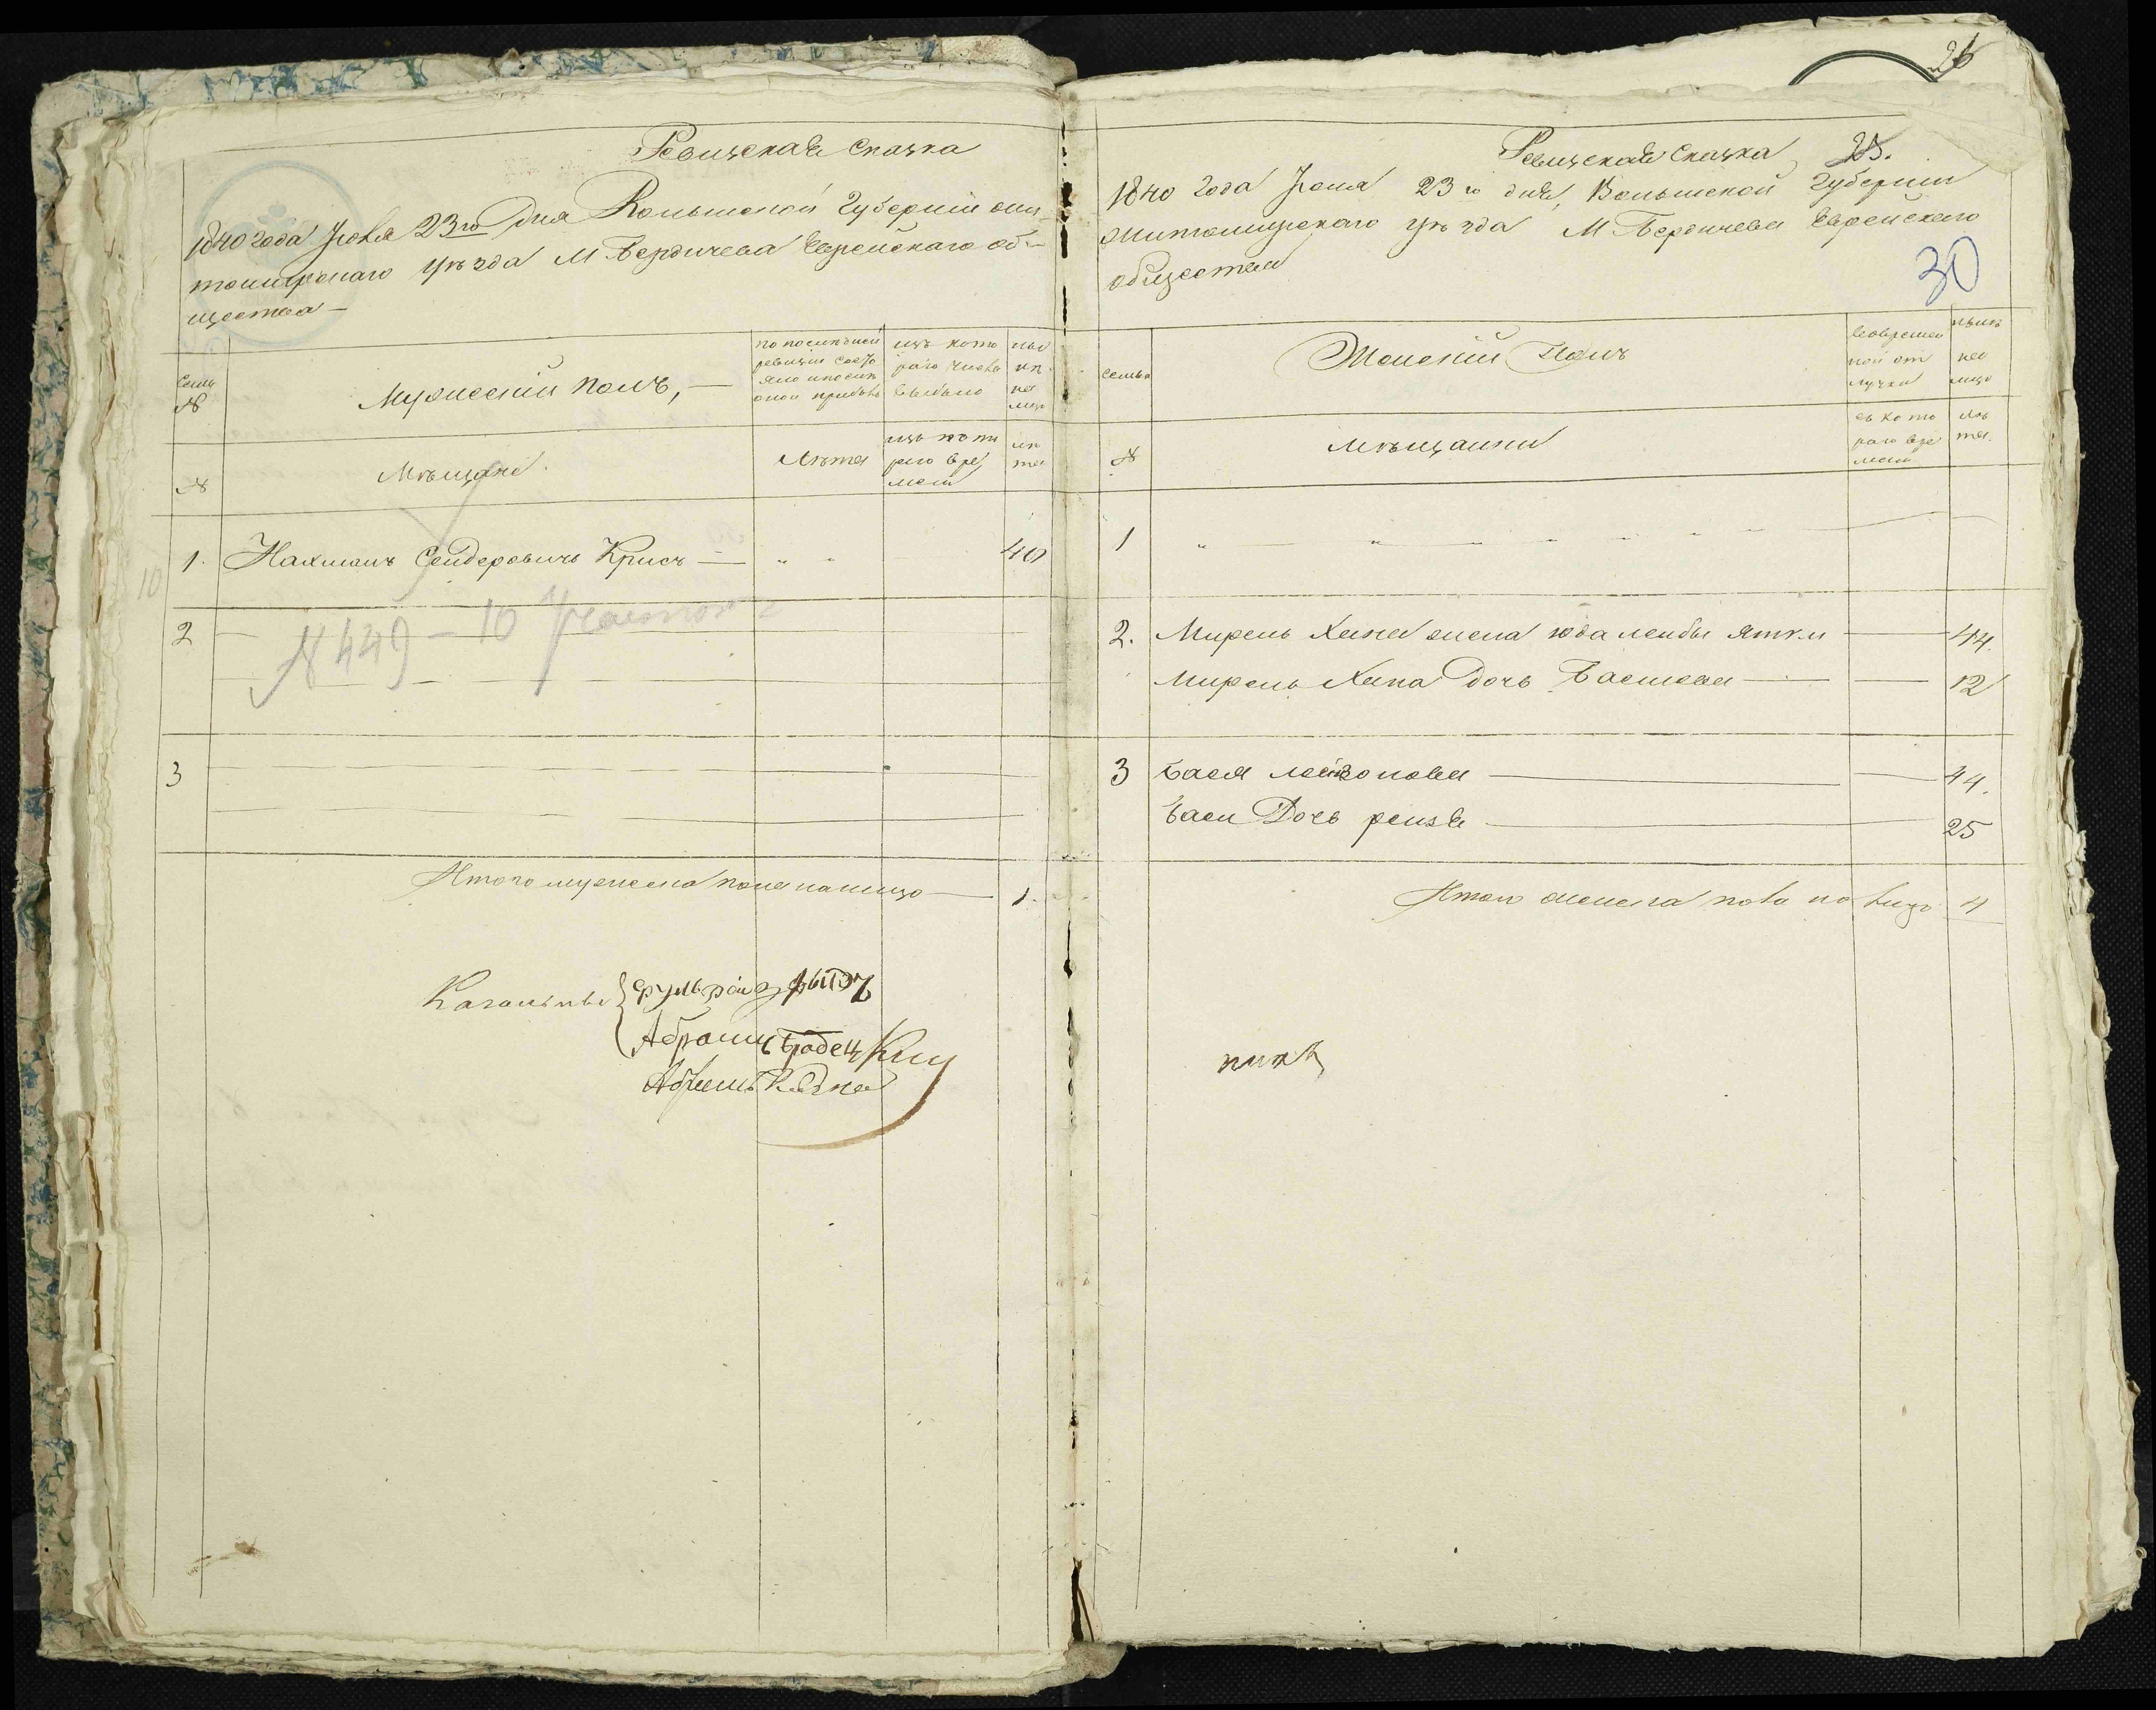 Ревизская сказка
1840 года Июня 23го дня Волынской губернии жи-
томирскаго уѣзда М Бердичева Еврейскаго об-
щества —
Семьи
№
Мужескій полъ, —
по послѣдней
ревизіи состо
яло и послѣ
оной прибыло
изъ кото
раго числа
выбыло
ны
нѣ
на
лицо
№
Мѣщане.
Лѣта
изъ кото
раго вре
мени
лѣ
та
10
1. Нахманъ Сендеровичъ Крисъ — " " 40
2
№ 449 — 10 Участокъ
3
Итого мужеска пола налицо — 1.
Кагальные
Абрамъ Бродецкій
Абрамъ
26
Ревизская сказка 25.
1840 года Июня 23го дня, Волынской губерніи
житомирскаго уѣзда М Бердичева Еврейскаго
общества
30
Семьи
Женскій полъ
во времен
ной от
лучки
нынѣ
на
лицо
№
Мѣщанки
съ кото
раго вре
мени
лѣ
та.
1 " — " — " " " " —
2. Мирель Хана жена Юда лейбы — 44.
Мирель Хана дочь Басшева — 12
3 Бася — 44.
Баси Дочь рейзя — 25
Итого женска пола на лицо 4